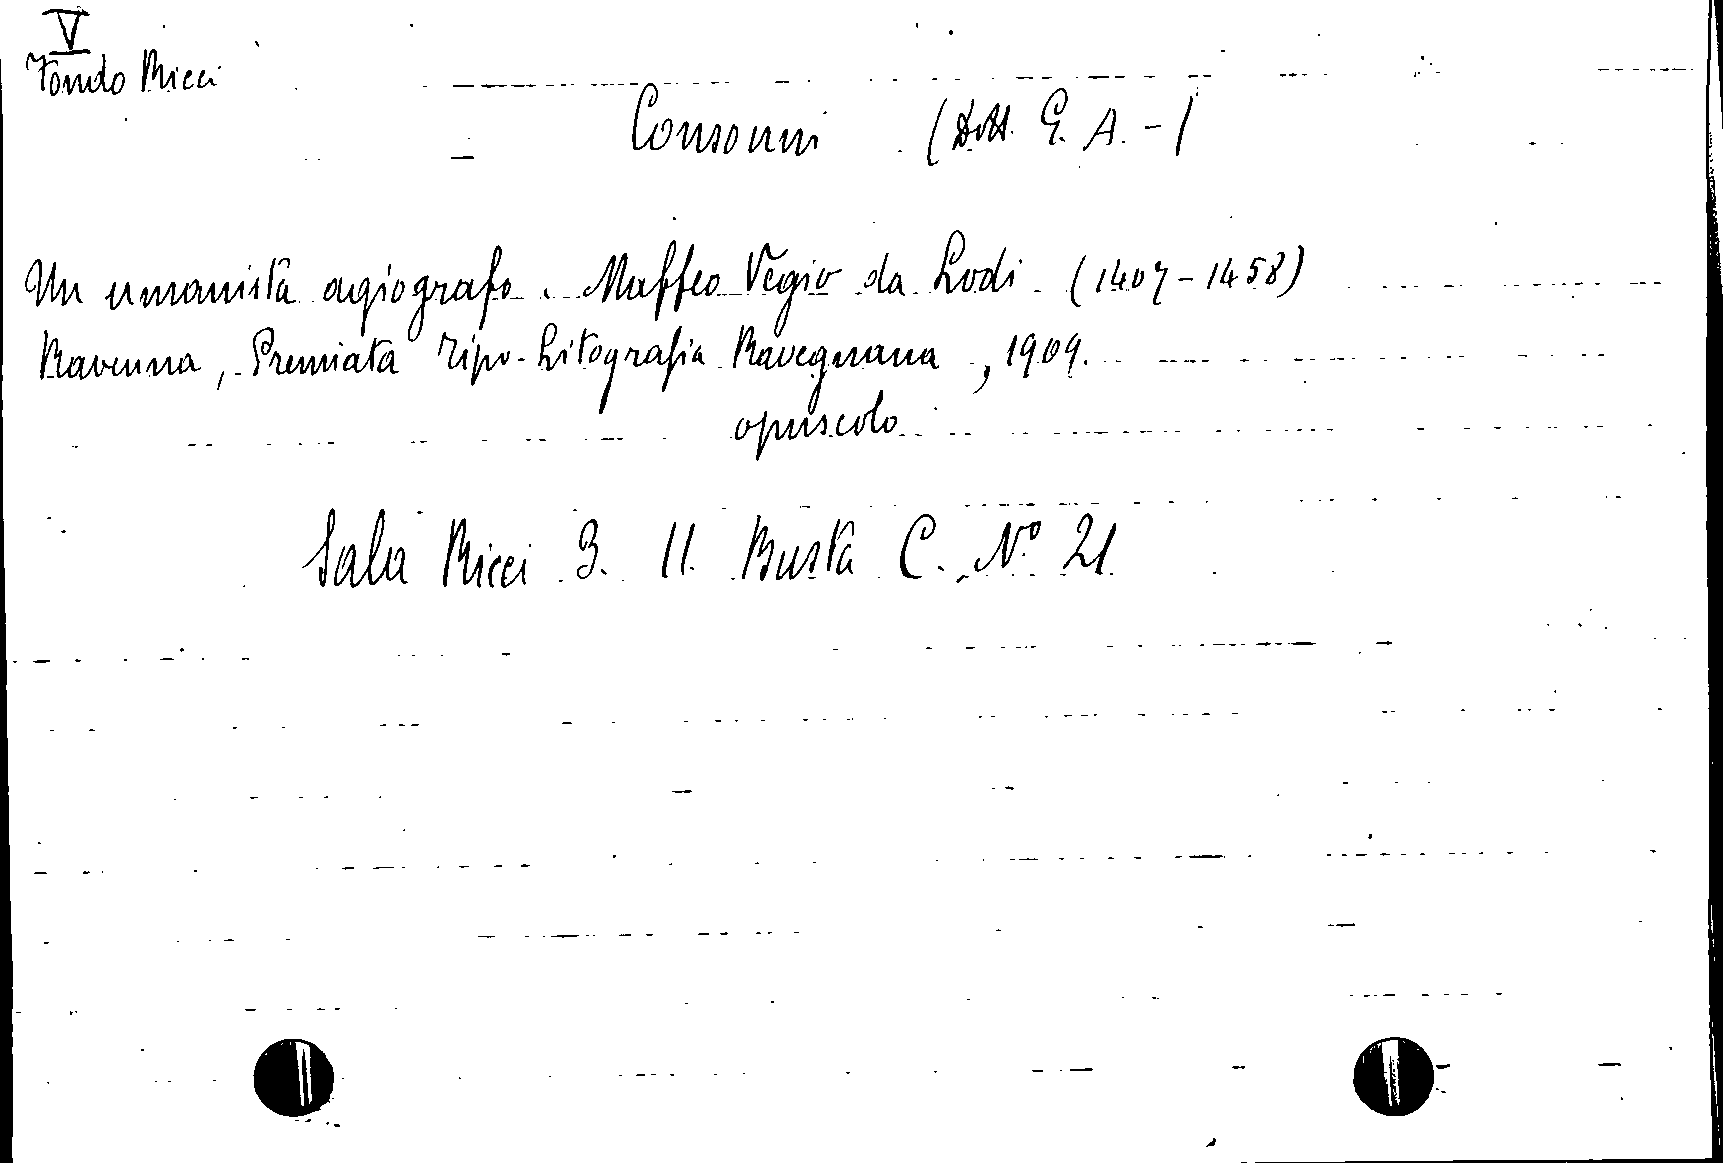 V
Fondo Ricci
Consonni (Dott. G. A. -)
Un umanista agiografo. Maffeo Vegio da Lodi (1407-1458)
Ravenna, Premiata Tipo-Litografia Ravegnana, 1909.
opuscolo
Sala Ricci 3. 11. Busta C. N° 21